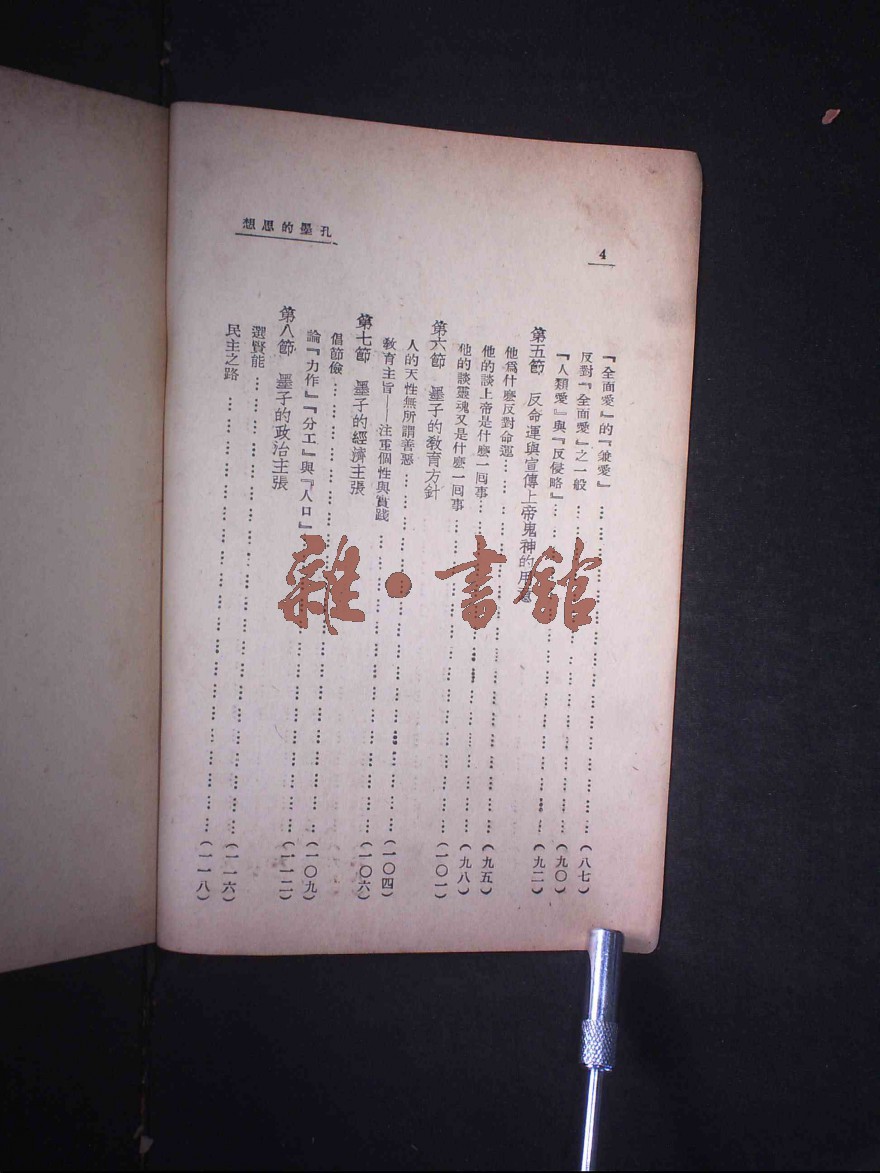 孔墨的思想
4
『全面愛』的『兼愛』……(八七)
反對『全面愛』之一般……(九〇)
『人類愛』與『反侵略』……(九二)
第五節　反命運與宣傳上帝鬼神的用意
他爲什麽反對命運……(九五)
他的談上帝是什麽一囘事……(九八)
他的談靈魂又是什麽一囘事……(一〇一)
第六節　墨子的教育方針
人的天性無所謂善惡……(一〇四)
教育主旨——注重個性與實踐……(一〇六)
第七節　墨子的經濟主張
倡節儉……(一〇九)
論『力作』『分工』與『人口』……(一一二)
第八節　墨子的政治主張
選賢能……(一一六)
民主之路……(一一八)
雜·書館